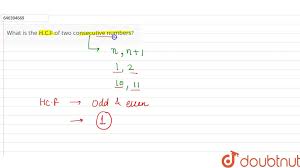 646304669
What is the H.C.F of two consecutive numbers?
n, n+1
1, 2
10, 11
HCF → odd & even
→ 1
doubtnut